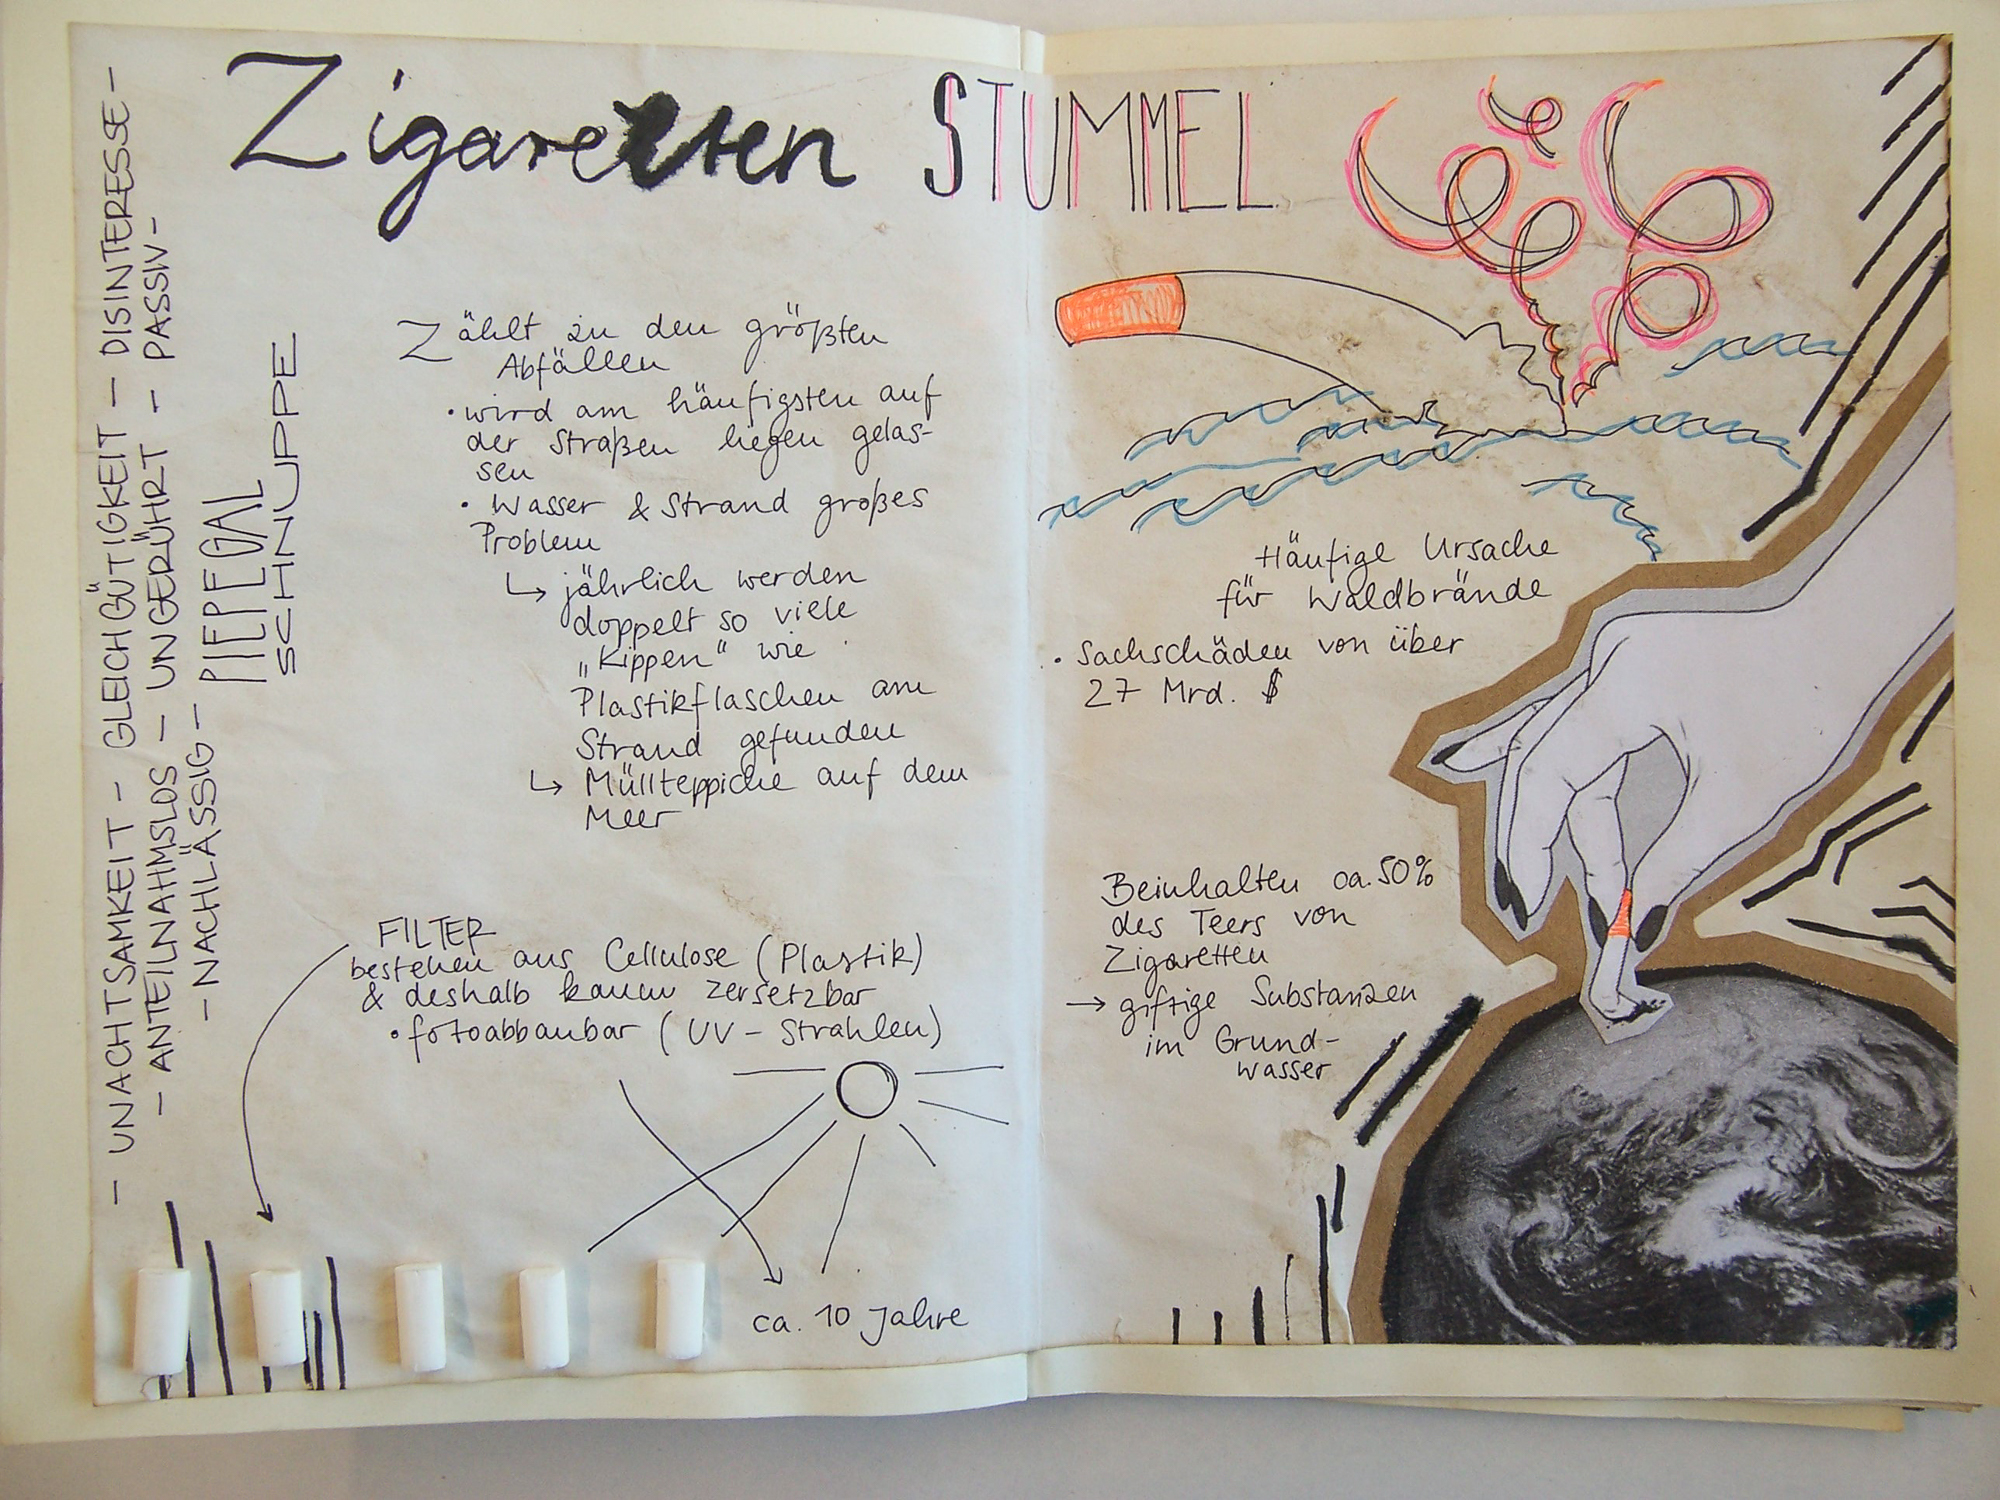 Zigaretten STUMMEL
- UNACHTSAMKEIT - GLEICHGÜTIGKEIT - DISINTERESSE -
- ANTEILNAHMSLOS - UNGERÜHRT - PASSIV -
- NACHLÄSSIG - PIEPEGAL
SCHNUPPE
Zählt zu den größten
Abfällen
• wird am häufigsten auf
der Straßen liegen gelas-
sen
• Wasser & Strand großes
Problem
↳ jährlich werden
doppelt so viele
„Kippen“ wie
Plastikflaschen am
Strand gefunden
↳ Müllteppiche auf dem
Meer
FILTER
bestehen aus Cellulose (Plastik)
& deshalb kaum zersetzbar
• fotoabbaubar (UV-Strahlen)
ca. 10 Jahre
Häufige Ursache
für Waldbrände
• Sachschäden von über
27 Mrd. $
Beinhalten ca. 50%
des Teers von
Zigaretten
→ giftige Substanzen
im Grund-
wasser